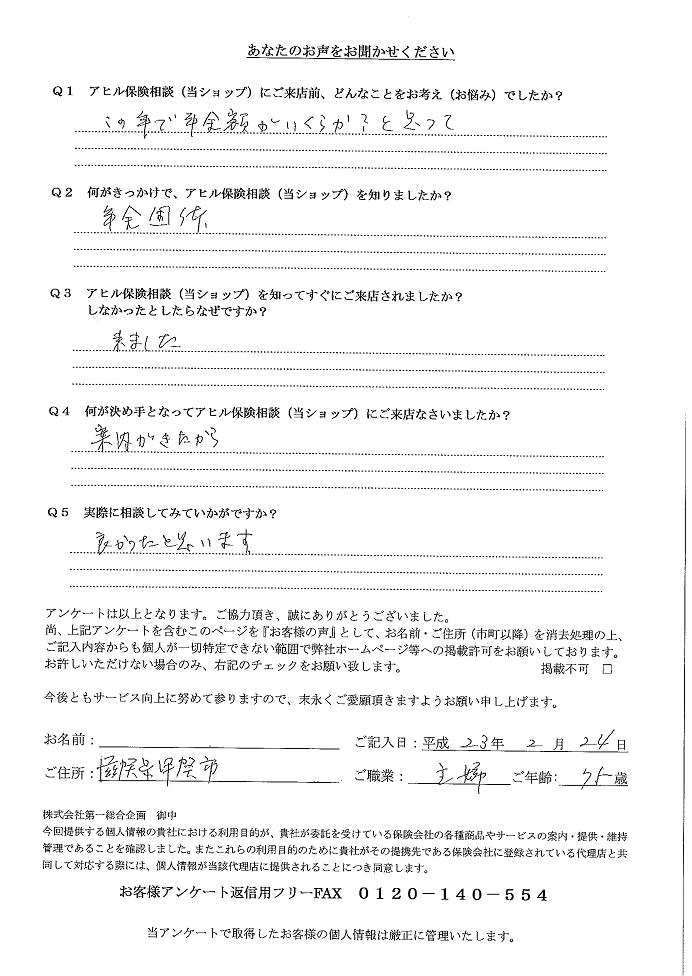 あなたのお声をお聞かせください
Q1 アヒル保険相談（当ショップ）にご来店前、どんなことをお考え（お悩み）でしたか？
この年で年金額がいくらか？と思って
Q2 何がきっかけで、アヒル保険相談（当ショップ）を知りましたか？
年金団体
Q3 アヒル保険相談（当ショップ）を知ってすぐにご来店されましたか？
しなかったとしたらなぜですか？
来ました
Q4 何が決め手となってアヒル保険相談（当ショップ）にご来店なさいましたか？
案内がきたから
Q5 実際に相談してみていかがですか？
良かったと思います
アンケートは以上となります。ご協力頂き、誠にありがとうございました。
尚、上記アンケートを含むこのページを『お客様の声』として、お名前・ご住所（市町以降）を消去処理の上、
ご記入内容からも個人が一切特定できない範囲で弊社ホームページ等への掲載許可をお願いしております。
お許しいただけない場合のみ、右記のチェックをお願い致します。 掲載不可 □
今後ともサービス向上に努めて参りますので、末永くご愛顧頂きますようお願い申し上げます。
お名前： ご記入日：平成 23年 2 月 24 日
ご住所：滋賀県甲賀市 ご職業： 主婦 ご年齢： 75歳
株式会社第一総合企画 御中
今回提供する個人情報の貴社における利用目的が、貴社が委託を受けている保険会社の各種商品やサービスの案内・提供・維持
管理であることを確認しました。またこれらの利用目的のために貴社がその提携先である保険会社に登録されている代理店と共
同して対応する際には、個人情報が当該代理店に提供されることにつき同意します。
お客様アンケート返信用フリーFAX 0120－140－554
当アンケートで取得したお客様の個人情報は厳正に管理いたします。